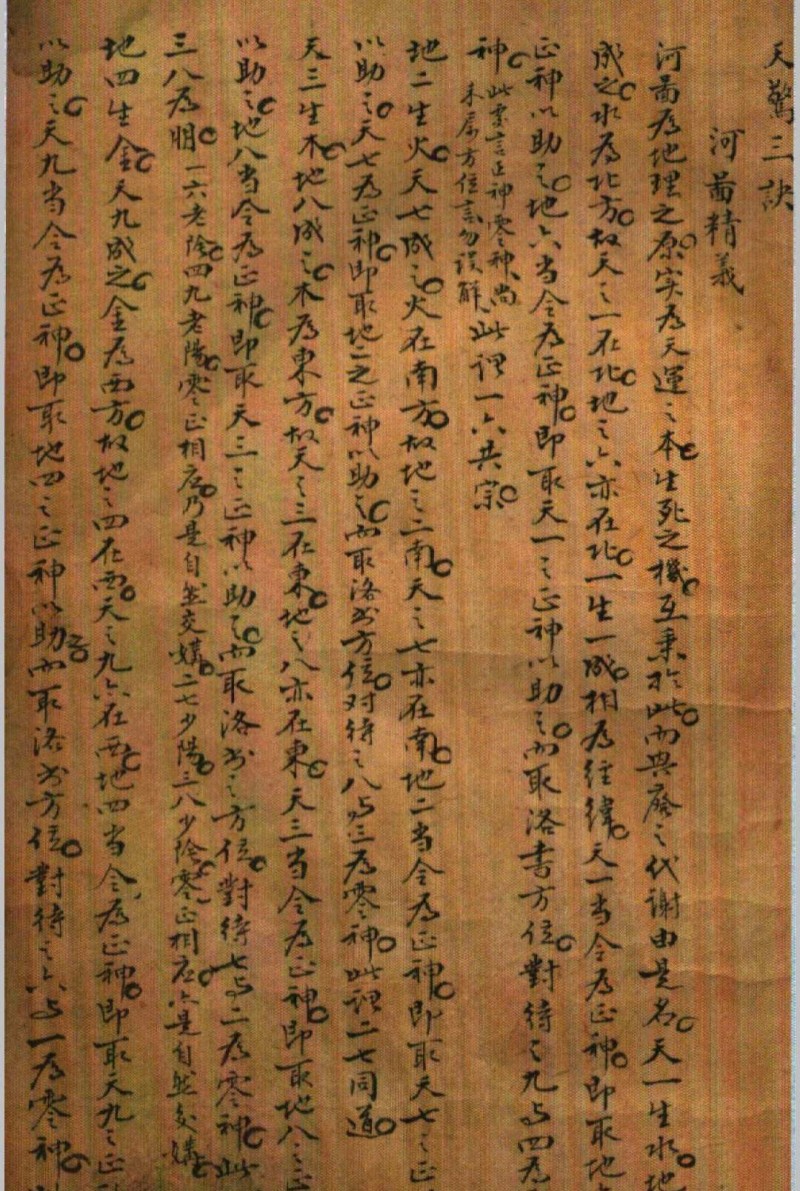 天驚三訣
河啚精義
河啚為地理之原实為天運之本生死之機互乗於此而興廢之代謝由是名天一生水地
成之水為北方故天之一在北地之六亦在北一生一成相為経緯天一当令為正神即取地
正神以助之地六当令為正神即取天一之正神以助之而取洛書方位對待之九与四為
神此条言正神零神尚
未属方位言勿误解此谓一六共宗
地二生火天七成之火在南方故地之二南天之七亦在南地二当令為正神即取天七之正
以助之天七為正神即取地二之正神以助之而取洛书方位对待之八与三為零神此谓二七同道
天三生木地八成之木為東方故天之三在東地之八亦在東天三当令為正神即取地八之正
以助之地八当令為正神即取天三之正神以助之而取洛书之方位對待七与二為零神此
三八為朋一六老陰四九老陽零正相应乃是自然交媾二七少陽三八少陰零正相应六是自然交媾
地四生金天九成之金為西方故地之四在西天之九六在西地四当令為正神即取天九之正
以助之天九当令為正神即取地四之正神以助而取洛书方位對待之六与一為零神